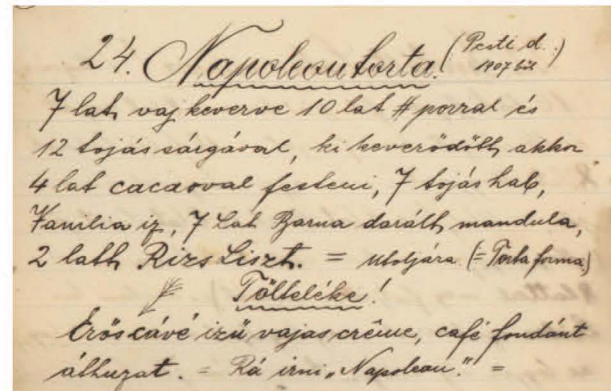 24. Napoleon torta! (Pesti d. 1907 ből)
7 lat vaj keverve 10 lat # porral és
12 tojás sárgával, ki keverődött, akkor
4 lat cacaoval festeni, 7 tojás hab,
Vanilia iz, 7 Lat Barna darált mandula,
2 lath Rizs Liszt. = utoljára. (= Torta forma)
Tölteléke!
Erős cávé izű vajas crême, café fondánt
áthuzat. = Rá irni „Napoleon". =